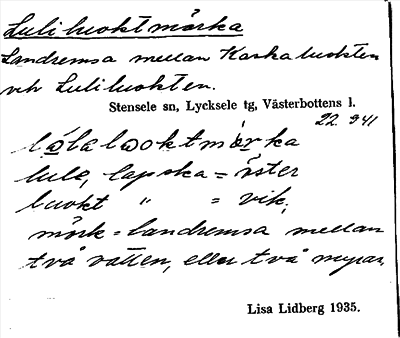 Luliluoktmårka
Landremsa mellan Kaskaluokten
och Luliluokten.
Stensele sn, Lycksele tg, Västerbottens l.
22. 941
lule, lapska = öster
luokt " = vik,
mårk = landremsa mellan
två vatten, eller två myrar.
Lisa Lidberg 1935.